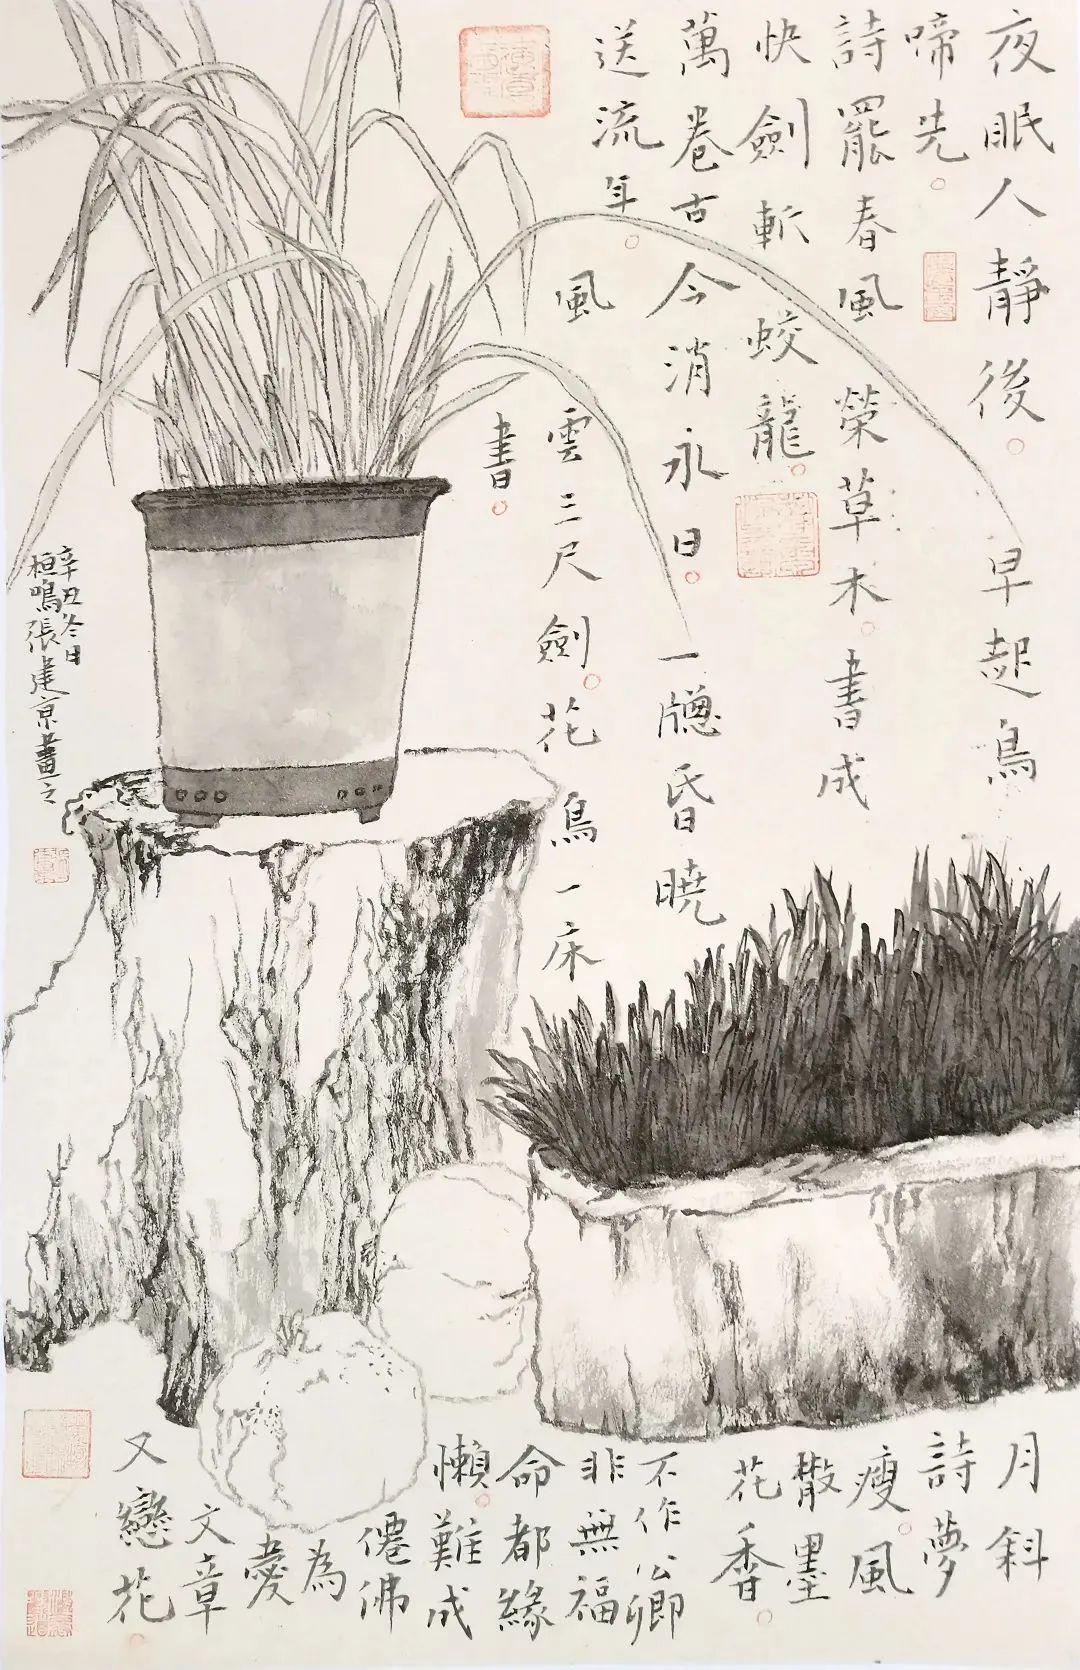 夜眠人靜後。早起鳥
啼先。
詩罷春風榮草木。書成
快劍斬蛟龍。
萬卷古今消永日。一牕昏曉
送流年。
風雲三尺劍。花鳥一床
書。
月斜
詩夢
瘦。風
散墨
花香。
不作公卿
非無福
命都緣
懶。難成
僊佛
為
愛
文章
又戀花。
辛丑冬日
桓鳴張建京畫之